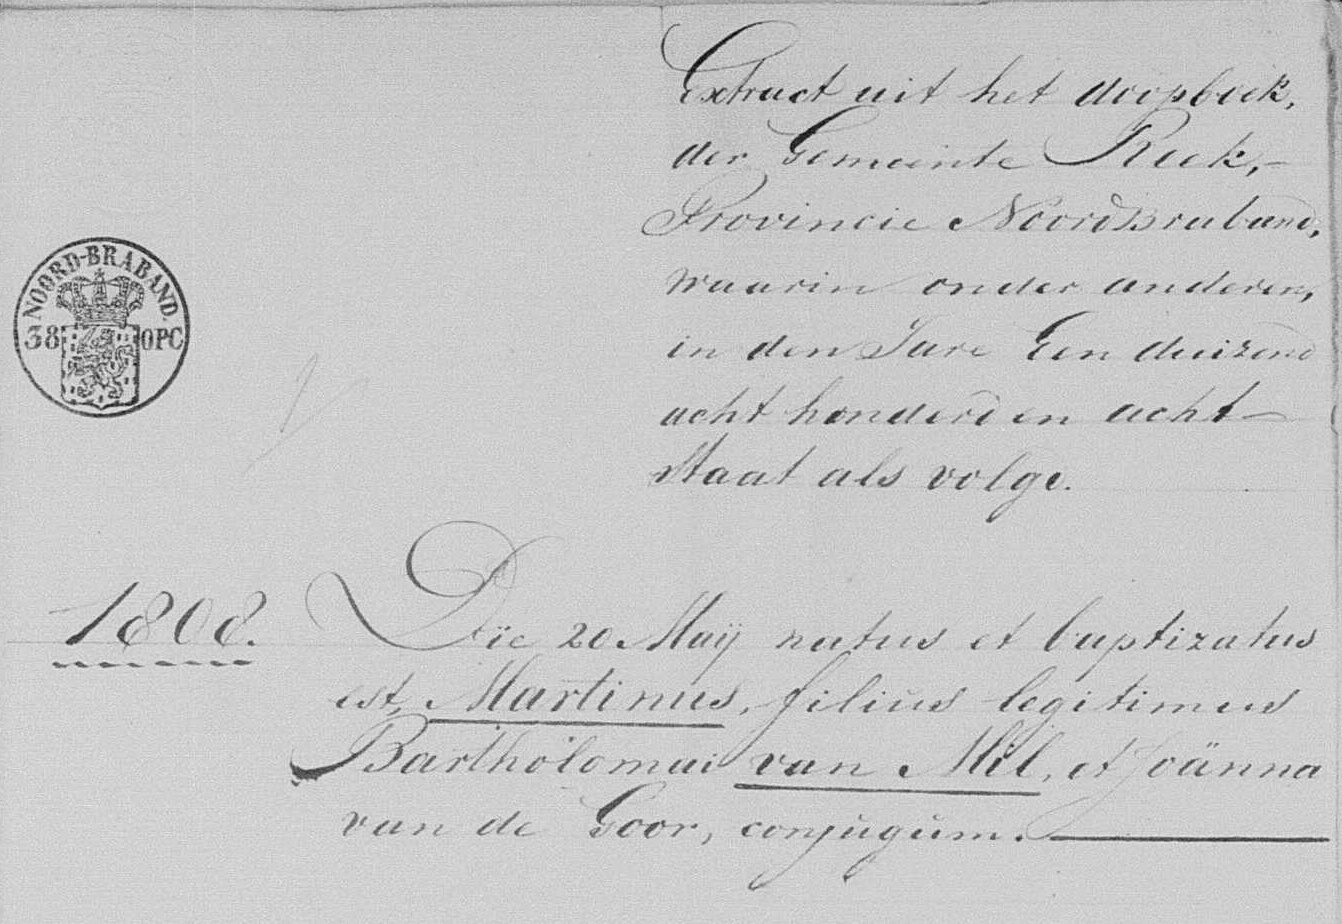 Extract uit het doopboek,
der Gemeinte Reek,
Provincie Noordbraband,
waarin onder anderen,
in den Jare Een duizend
acht honderd en acht
Staat als volgt.
NOORD-BRABAND.
38 OPC
1808.
Dïe 20 Maÿ natus et baptizatus
est, Martinus, filius legitimus
Bartholomai van Mil, et Joänna
van de Goor, conjugum.